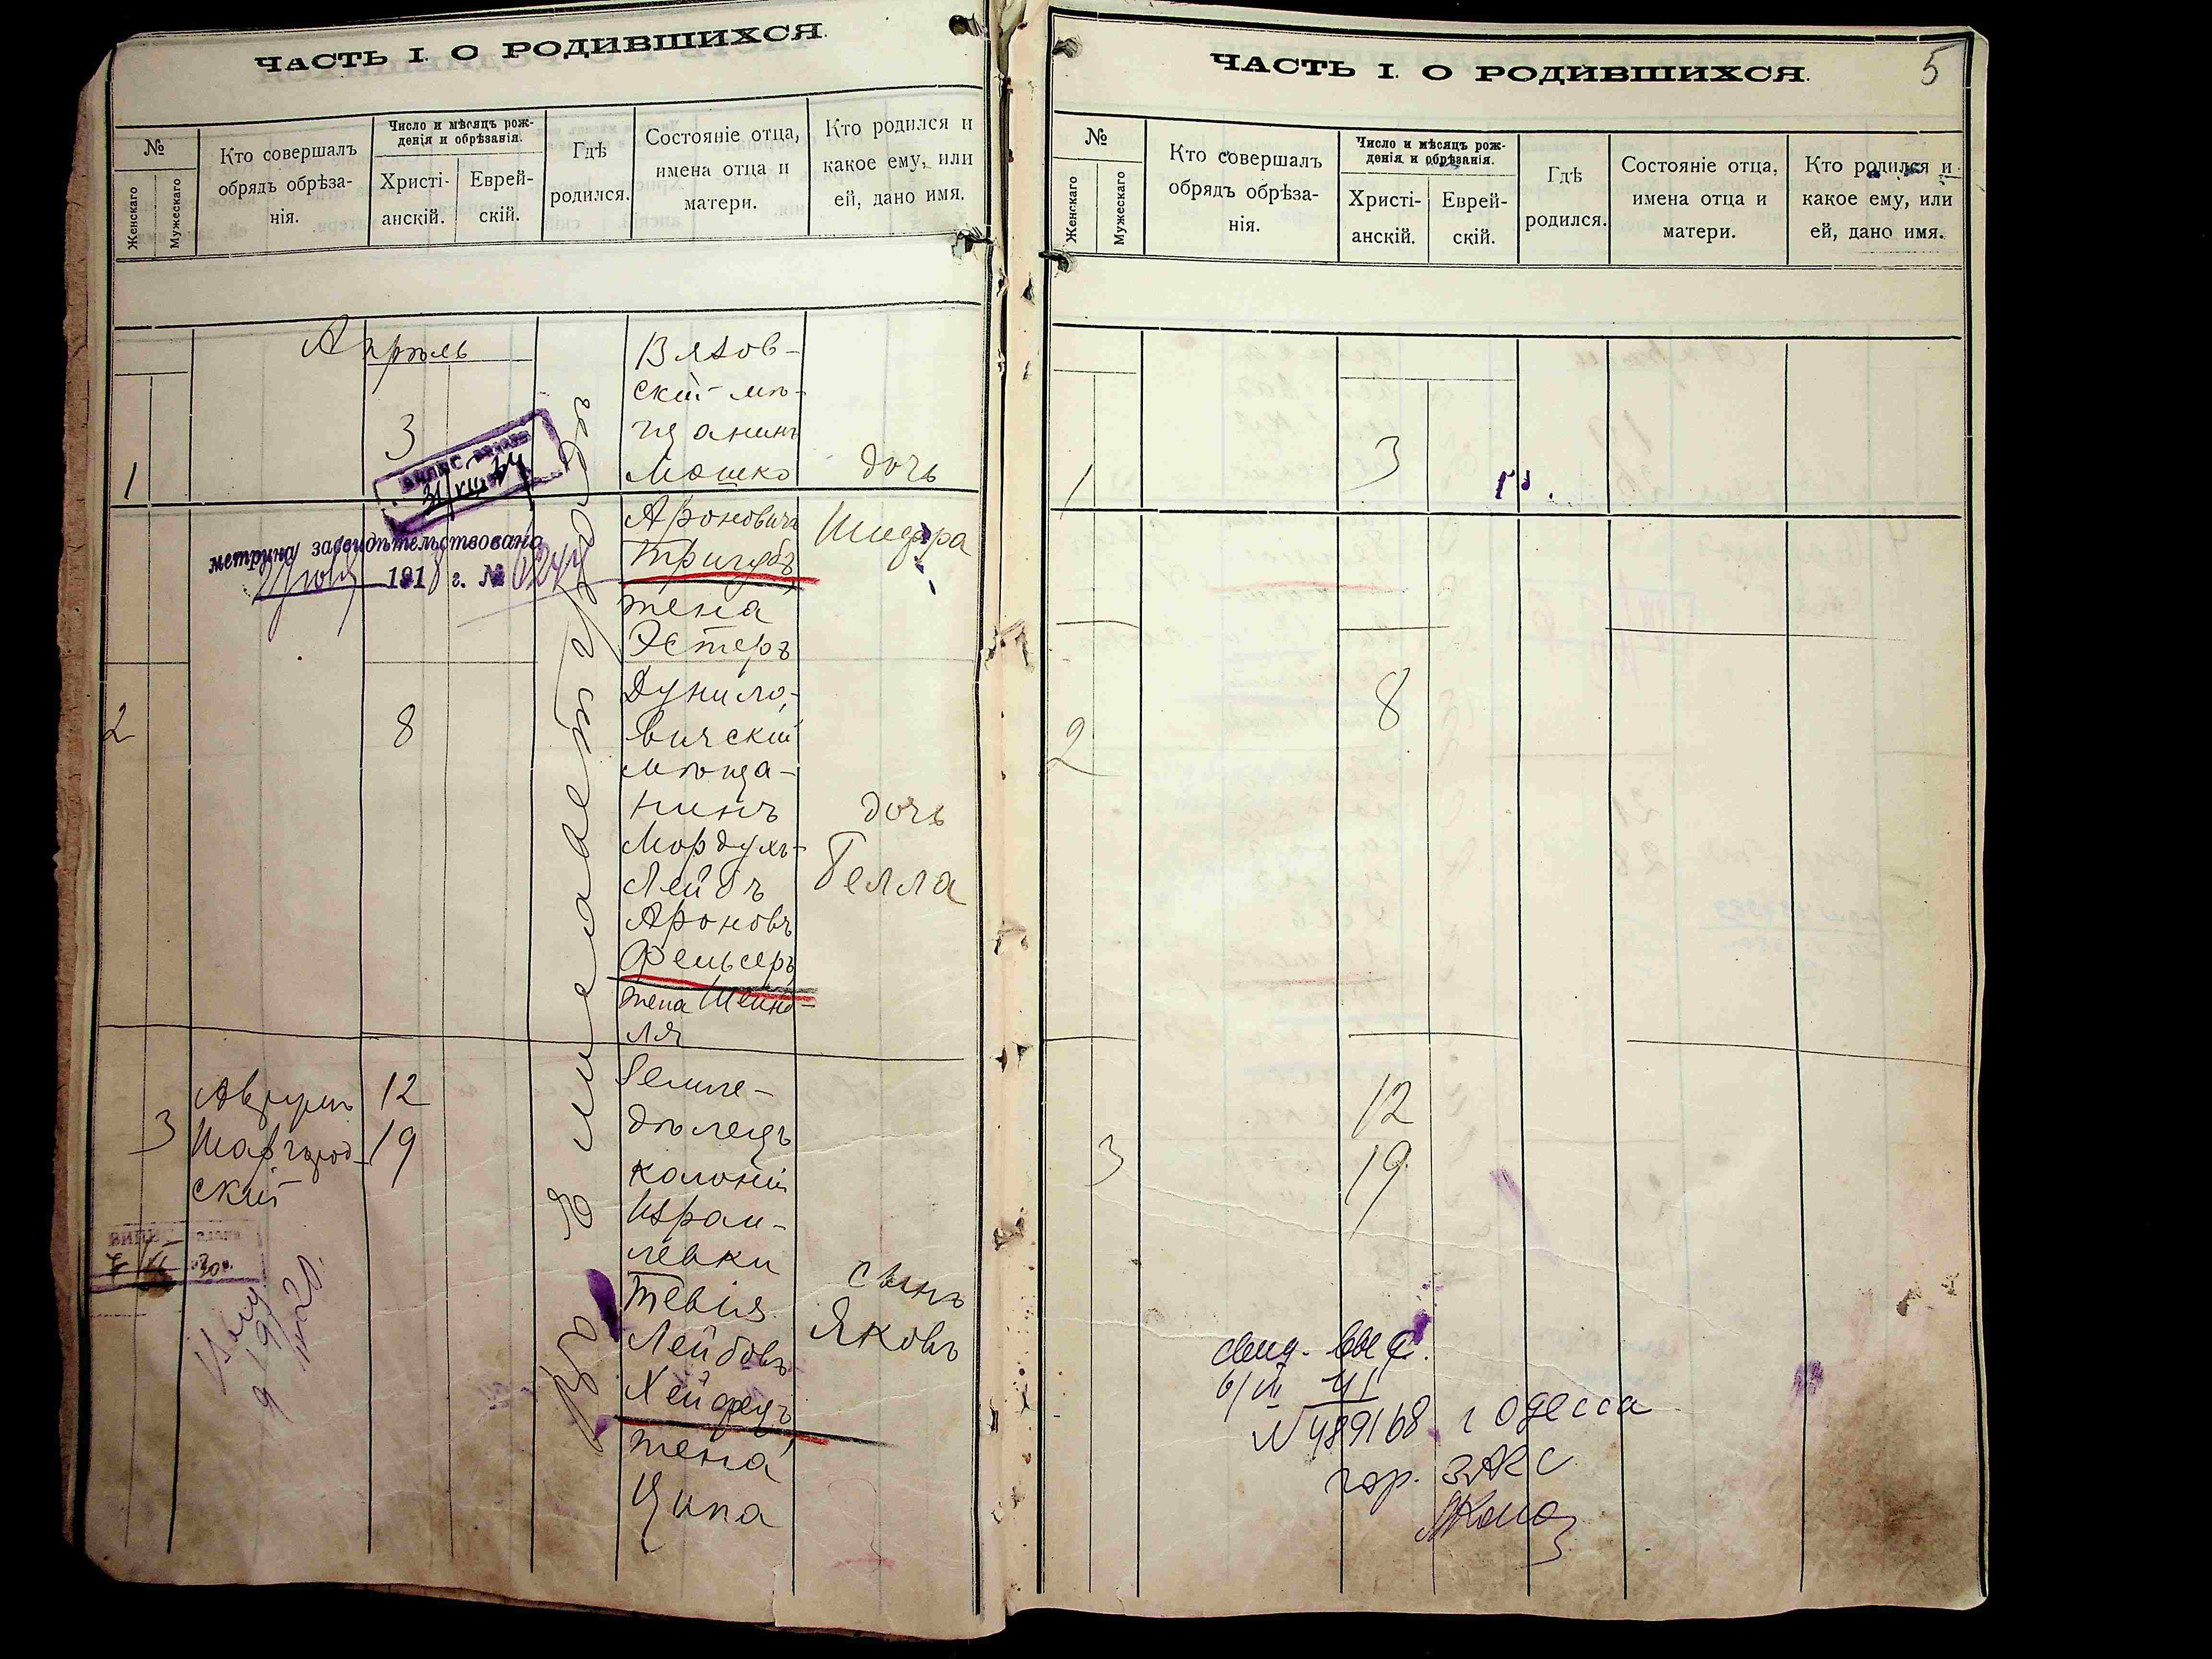 ЧАСТЬ I. О РОДИВШИХСЯ.
№
Женскаго
Мужескаго
Кто совершалъ
обрядъ обрѣза-
нія.
Число и мѣсяцъ рож-
денія и обрѣзанія.
Христі-
анскій.
Еврей-
скій.
Гдѣ
родился.
Состояніе отца,
имена отца и
матери.
Кто родился и
какое ему, или
ей, дано имя.
Апрѣль
1
3
Вязов-
скій мѣ-
щанинъ
Мошко
Ароновичъ
Тригубъ
жена
Эстеръ
дочь
Шифра
31 XII 24
метрика засвидѣтельствована
1918 г. № 6244
2
8
Дунило-
вичскій
мѣща-
нинъ
Мордухъ-
Лейбъ
Ароновъ
Фельсеръ
жена Шейнд-
ля
дочь
Белла
3
Аврумъ
Шаргород-
скій
12
19
Земле-
дѣлецъ
колоніи
Израи-
левки
Тевія
Лейбовъ
Хейфецъ
жена
Ципа
сынъ
Яковъ
Въ Елисаветградѣ
ЧАСТЬ I. О РОДИВШИХСЯ.
5
№
Женскаго
Мужескаго
Кто совершалъ
обрядъ обрѣза-
нія.
Число и мѣсяцъ рож-
денія и обрѣзанія.
Христі-
анскій.
Еврей-
скій.
Гдѣ
родился.
Состояніе отца,
имена отца и
матери.
Кто родился и
какое ему, или
ей, дано имя.
1
3
2
8
3
12
19
6/VI 41
N 489168 г Одесса
гор. ЗАГС